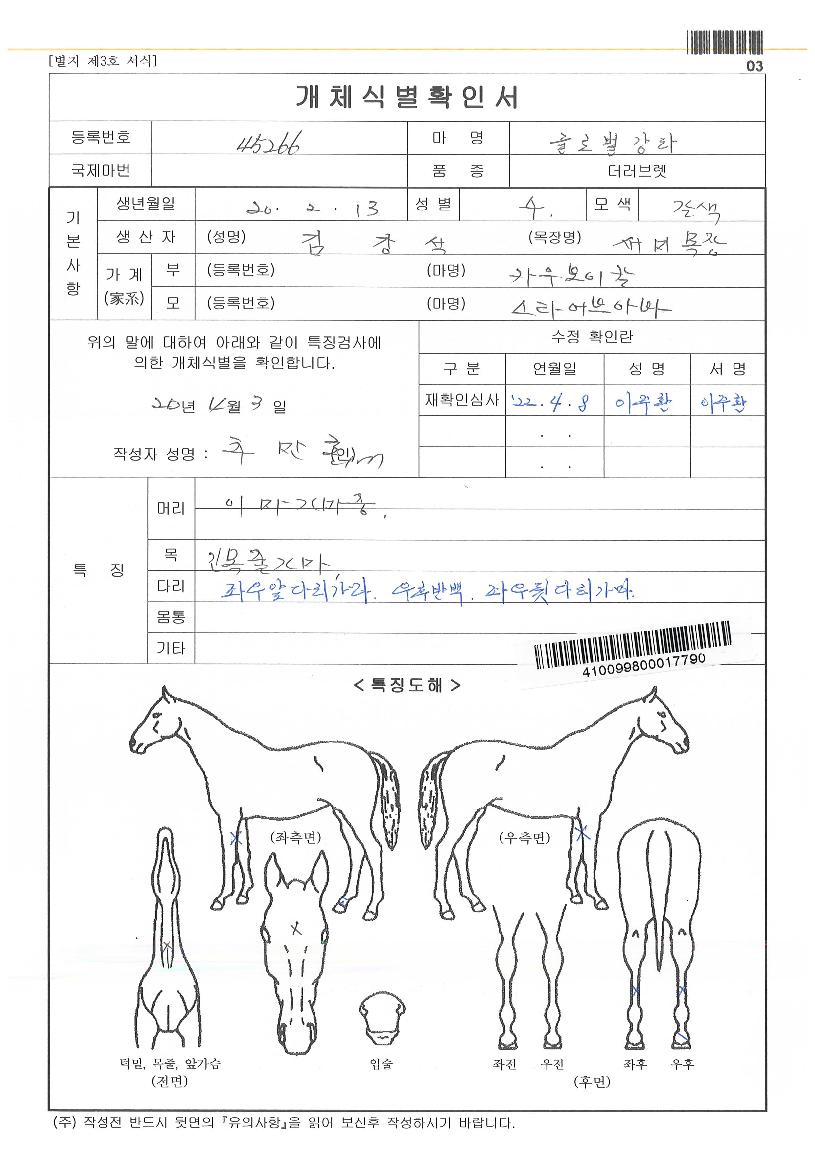 [별지 제3호 서식]
03
개체식별확인서
등록번호 45266 마 명 글로벌강타
국제마번 품 종 더러브렛
기본사항
생년월일 20. 2. 13 성 별 수. 모 색 갈색
생 산 자 (성명) 김 강 석 (목장명) 목장
가 계 (家系) 부 (등록번호) (마명) 카우보이칼
모 (등록번호) (마명)
위의 말에 대하여 아래와 같이 특징검사에
의한 개체식별을 확인합니다.
수정 확인란
구 분 연월일 성 명 서 명
재확인심사 '22. 4. 8 이주환 이주환
20년 월 3 일
. .
작성자 성명 : (인)
. .
특 징
머리 이마가마중.
목 긴목줄가마,
다리 좌우앞다리가마. 우후반백. 좌우뒷다리가마.
몸통
기타
410099800017790
< 특징도해 >
(좌측면) (우측면)
턱밑, 목줄, 앞가슴 입술 좌전 우전 좌후 우후
(전면) (후면)
(주) 작성전 반드시 뒷면의 『유의사항』을 읽어 보신후 작성하시기 바랍니다.